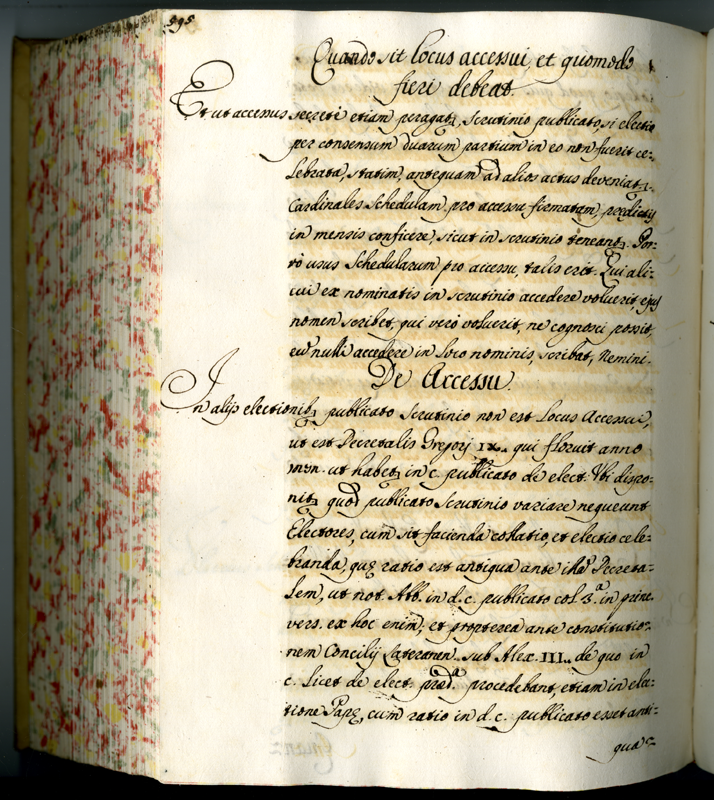 595
Quando sit locus accessui, et quomodo
fieri debeat.
Et ut accessus secreti etiam peragat, scrutinio publicato, si electio
per consensum duarum partium in eo non fuerit ce=
lebrata, statim, antequam ad alios actus deveniat,
Cardinales schedulam pro accessu firmatam, predictis
in mensis conficere, sicut in scrutinio teneant. Por=
rò usus schedularum pro accessu, talis erit. Qui ali=
cui ex nominatis in scrutinio accedere voluerit, ejus
nomen scribet, qui verò voluerit, ne cognosci possit,
eu nulli accedere in loco nominis, scribat, Nemini.
De Accessu.
In alijs electionib, publicato scrutinio non est Locus Accessui,
ut est Decretalis Gregorij IX. qui floruit anno
ut habet in c. publicato de elect. Ubi dispo=
nit, quod publicato scrutinio variare nequeunt
Electores, cum sit facienda collatio, et electio cele=
branda, quę ratio est antiqua ante Decreta=
lem, ut not. Abb. in d. c. publicato col. 3.ª in princ.
vers. ex hoc enim, et propterea ante constitutio=
nem Concilij Lateranen. sub Alex. III. de quo in
c. licet de elect. pred.ª procedebant, etiam in elec=
tione Papę, cum ratio in d. c. publicato esset anti=
qua